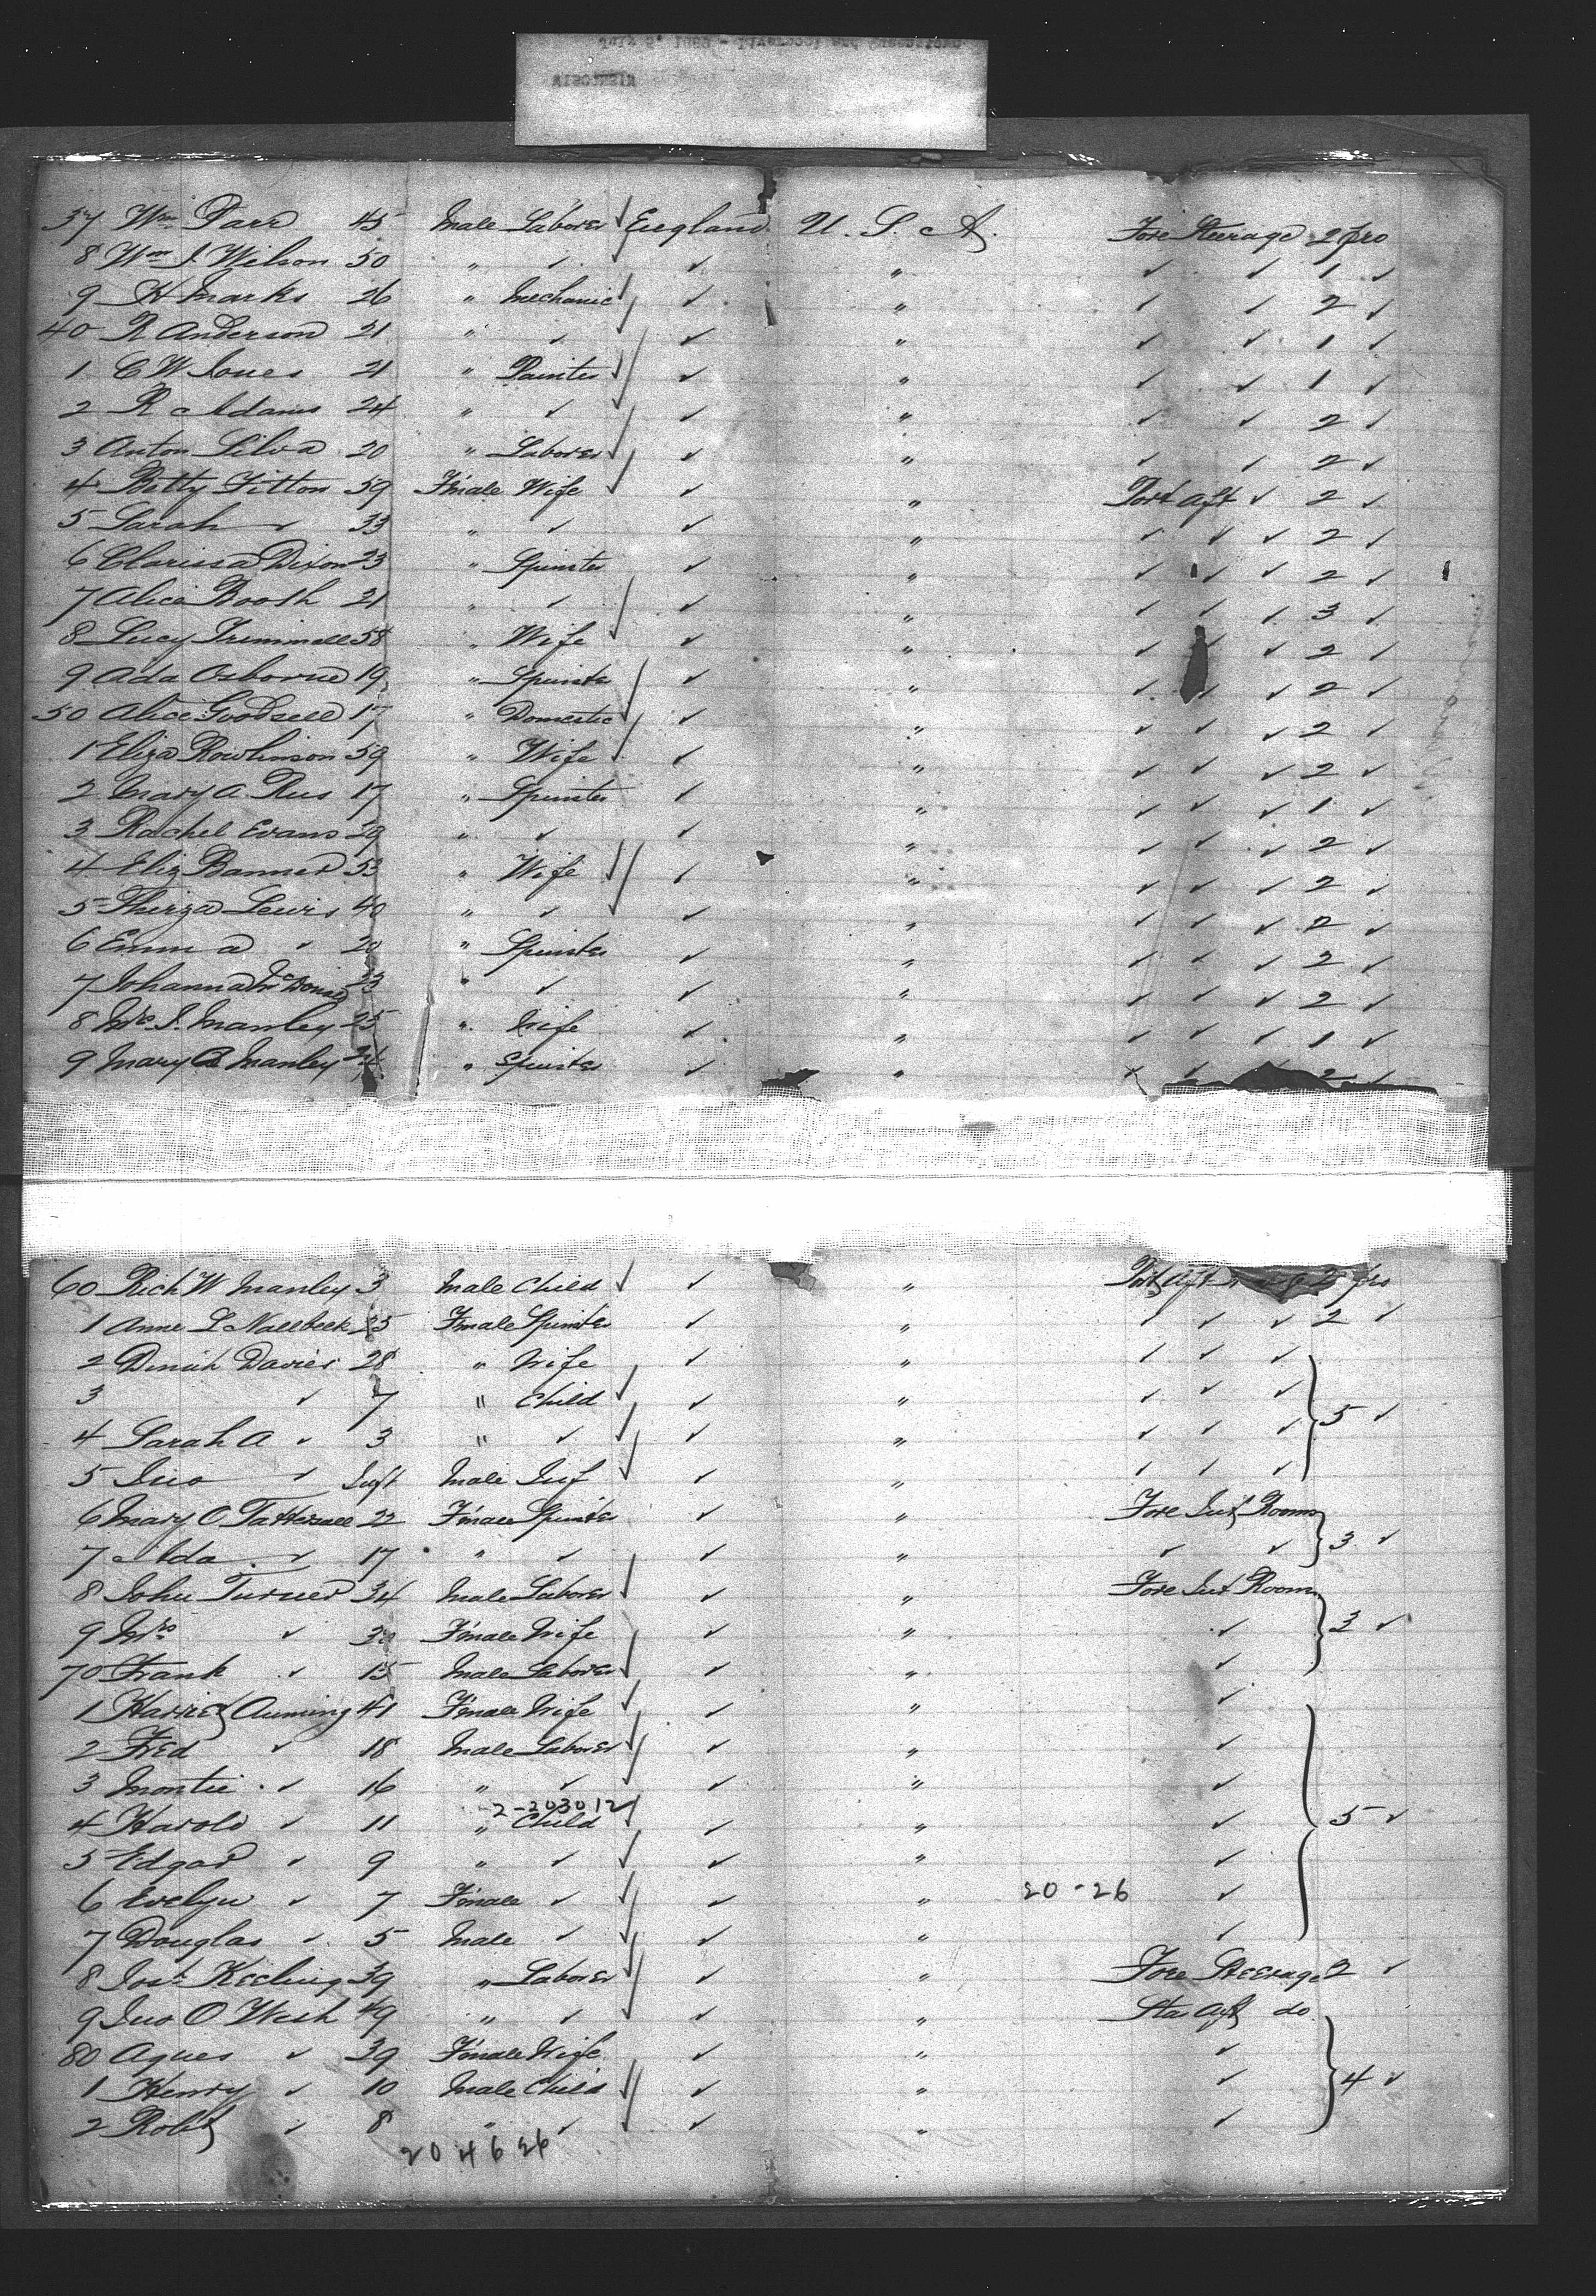 37 Wm Parr 45 Male Laborer ✓ England U. S. A. Fore Steerage 2 pro
8 Wm J. Wilson 50 " ✓ ✓ " ✓ ✓ 1 ✓
9 H Marks 26 " Mechanic ✓ " ✓ ✓ 2 ✓
40 R Anderson 21 " ✓ ✓ " ✓ ✓ 1 ✓
1 C W Jones 21 " Painter ✓ " ✓ ✓ 1 ✓
2 R Adams 24 " ✓ ✓ " ✓ ✓ 2 ✓
3 Anton Silva 20 " Laborer ✓ " ✓ ✓ 2 ✓
4 Betty Fitton 59 Female Wife ✓ " Port Aft ✓ 2 ✓
5 Sarah ✓ 33 " ✓ ✓ " ✓ ✓ ✓ 2 ✓
6 Clarissa Dixon 23 " Spinster ✓ " ✓ ✓ ✓ 2 ✓
7 Alice Booth 21 " ✓ ✓ " ✓ ✓ ✓ 3 ✓
8 Lucy 58 " Wife ✓ " ✓ ✓ ✓ 2 ✓
9 Ada Osborne 19 " Spinster ✓ " ✓ ✓ ✓ 2 ✓
50 Alice Goodsell 17 " Domestic ✓ " ✓ 2 ✓
1 Eliza Rowlinson 59 " Wife ✓ " ✓ ✓ ✓ 2 ✓
2 Mary A. Rees 17 " Spinster ✓ " ✓ ✓ ✓ 1 ✓
3 Rachel Evans 29 " ✓ ✓ " ✓ ✓ ✓ 2 ✓
4 Eliz Banner 53 " Wife ✓ " ✓ ✓ ✓ 2 ✓
5 Thirza Lewis 40 " ✓ ✓ " ✓ ✓ ✓ 2 ✓
6 Emma ✓ 20 " Spinster ✓ " ✓ ✓ ✓ 2 ✓
7 Johanna 23 " ✓ ✓ " ✓ ✓ ✓ 2 ✓
8 Mrs J. Manley 25 " Wife ✓ " ✓ ✓ ✓ 1 ✓
9 Mary B Manley " Spinster ✓ " ✓ ✓ 2 ✓
60 Rich W Manley 3 Male Child ✓ " Port Aft 2 pro
1 Anne L 25 Female Spinster ✓ " ✓ ✓ ✓ 2 ✓
2 Davies 28 " Wife ✓ " ✓ ✓ ✓
3 ✓ 7 " Child ✓ " ✓ ✓ ✓ 5 ✓
4 Sarah A ✓ 3 " ✓ ✓ " ✓ ✓ ✓
5 Jno ✓ Inft Male Inf ✓ " ✓ ✓ ✓
6 Mary O Tattersall 22 Female Spinster ✓ " Fore Int Rooms
7 Ada ✓ 17 " ✓ ✓ " ✓ ✓ 3 ✓
8 John Turner 34 Male Laborer ✓ " Fore Int Room
9 Mrs ✓ Female Wife ✓ " ✓ 3 ✓
70 Frank ✓ 15 Male Laborer ✓ " ✓
1 Harriet Anning 41 Female Wife ✓ " ✓
2 Fred ✓ 18 Male Laborer ✓ " ✓
3 Montie ✓ 16 " ✓ ✓ " ✓
2-203012
4 Harold ✓ 11 " Child ✓ " ✓ 5 ✓
5 Edgar ✓ 9 " ✓ ✓ " ✓
6 Evelyn ✓ 7 Female ✓ ✓ " 20-26 ✓
7 Douglas ✓ 5 Male ✓ ✓ " ✓
8 Josh Keeling 39 " Laborer ✓ " Fore Steerage 2 ✓
9 Jno O 49 " ✓ ✓ " Star Aft do
80 Agnes ✓ 39 Female Wife ✓ " ✓
1 Henry ✓ 10 Male Child ✓ " ✓ 4 ✓
2 Robt ✓ 8 " ✓ ✓ " ✓
20 4 6 26